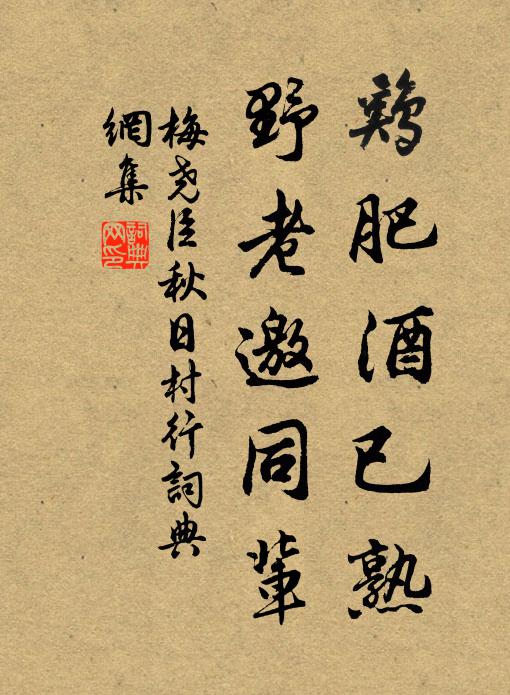 鷄肥酒已熟
野老邀同輩
梅堯臣秋日村行詞典
網集
詞典
网印